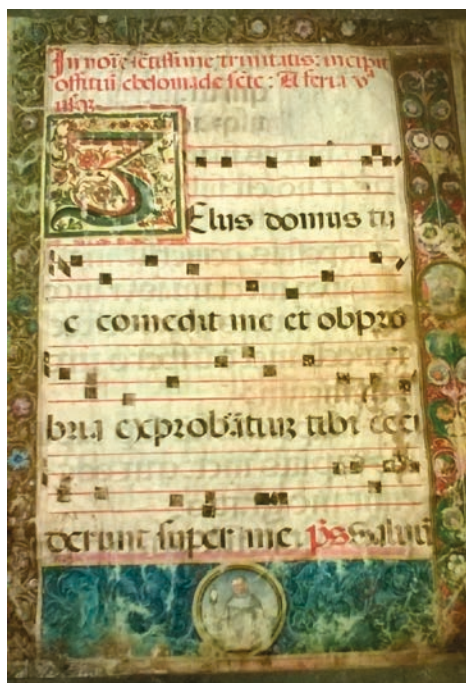 In noīe sctissime trinitatis: incipit
offitiū ebdomade scte: A feria vᵃ
usqʒ
Zelus domus tu
e comedit me et obpro
bria exprobātiuʒ tibi ceci
derunt super me. p̄s Saluū